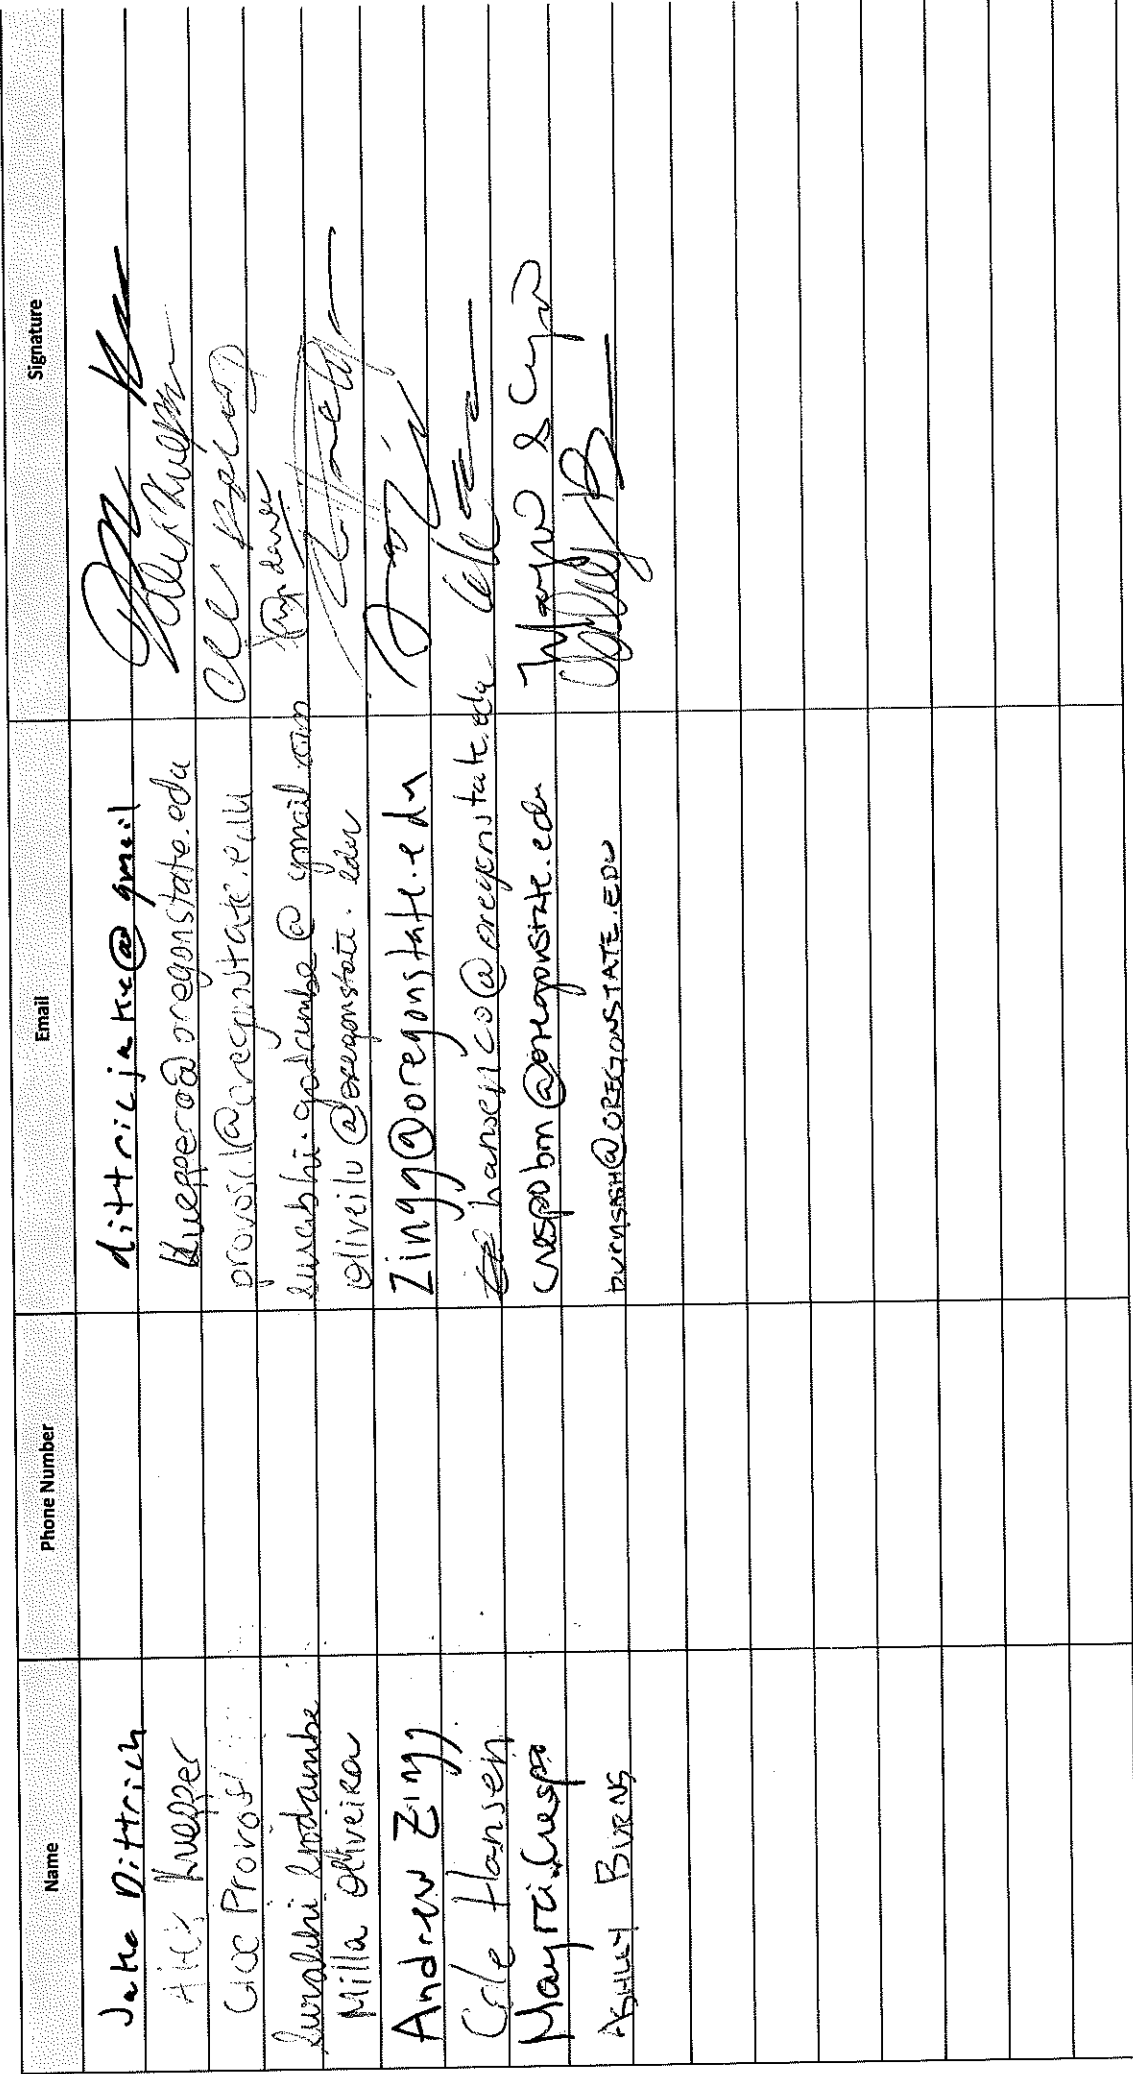 Name Phone Number Email Signature
Jake Dittrich dittricjake@gmail
Alex Kuepper kueppera@oregonstate.edu
Provost provoscl@oregonstate.edu
Surabhi Godambe surabhi.godambe@gmail.com
Milla Oliveira oliveilu@oregonstate.edu
Andrew Zingg Zingg@oregonstate.edu
Cole Hansen hansenco@oregonstate.edu
Mayra Crespo crespobm@oregonstate.edu
ASHLEY BURNS burnsash@OREGONSTATE.EDU